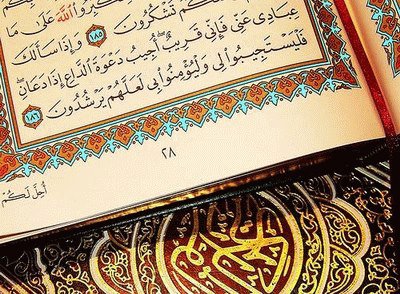 ٱللَّهَ عَلَىٰ مَا
تَشْكُرُونَ ١٨٥ وَإِذَا سَأَلَكَ
عِبَادِى عَنِّى فَإِنِّى قَرِيبٌ أُجِيبُ دَعْوَةَ ٱلدَّاعِ إِذَا دَعَانِ
فَلْيَسْتَجِيبُوا۟ لِى وَلْيُؤْمِنُوا۟ بِى لَعَلَّهُمْ يَرْشُدُونَ ١٨٦
٢٨
أُحِلَّ لَكُمْ